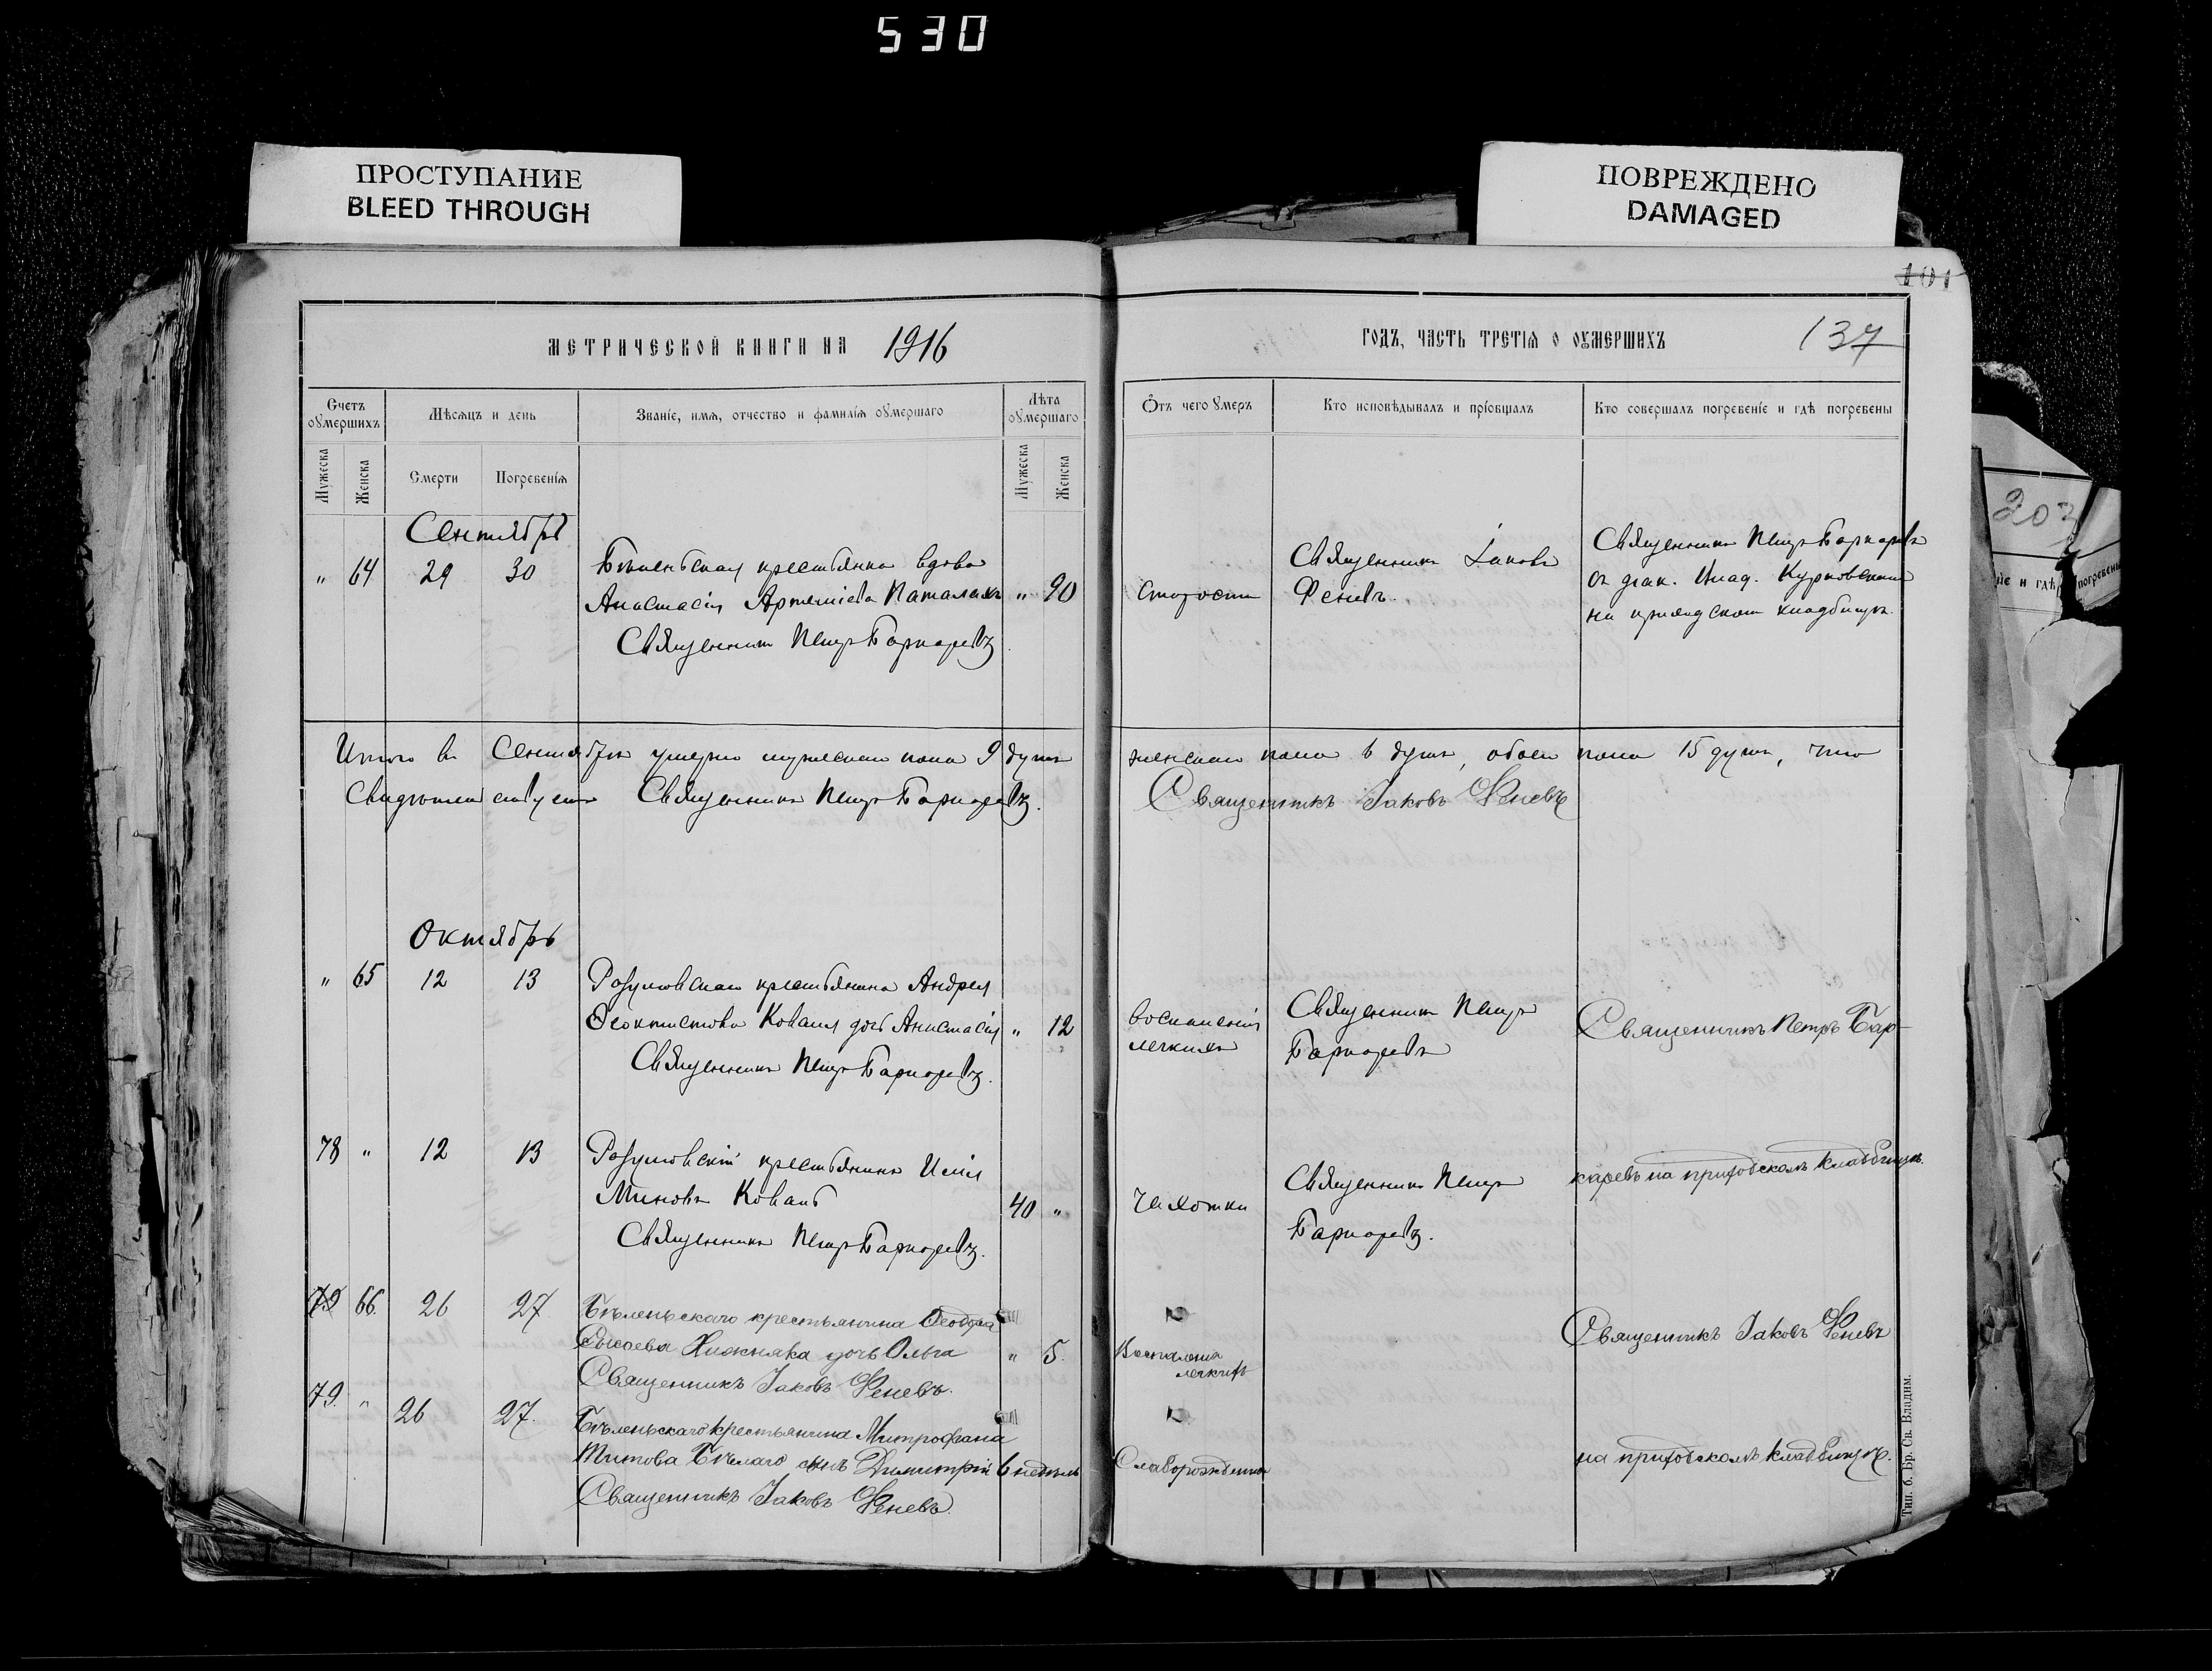 530
ПРОСТУПАНИЕ
BLEED THROUGH
ПОВРЕЖДЕНО
DAMAGED
101
МЕТРИЧЕСКОЙ КНИГИ НА 1916
ГОДЪ, ЧАСТЬ ТРЕТІЯ О ОУМЕРШИХЪ
137
Счетъ оумершихъ
Мѣсяцъ и день
Званіе, имя, отчество и фамилія оумершаго
Лѣта оумершаго
Отъ чего умеръ
Кто исповѣдывалъ и пріобщалъ
Кто совершалъ погребеніе и гдѣ погребены
Мужеска
Женска
Смерти
Погребенія
Мужеска
Женска
203
Сентябрь
" 64 29 30 Бѣленьская крестьянка вдова
Анастасія Артеміева Паталахъ " 90
Священникъ Петръ Бокаревъ
Старости
Священникъ Іаковъ
Феневъ.
Священникъ Петръ
съ діак. Влад. Курковскимъ
на приходскомъ кладбищѣ.
Итого въ Сентябрѣ умерло мужескаго пола 9 душъ женскаго пола 6 душъ, обоего пола 15 душъ, что
свидѣтельствуемъ Священникъ Петръ
Священникъ Іаковъ Феневъ
Октябрь
" 65 12 13 Разумовскаго крестьянина Андрея
Ѳеоктистова Коваля дочь Анастасія " 12
Священникъ Петръ
воспаленія
легкихъ
Священникъ Петръ
Священникъ Петръ Бар-
78 " 12 13 Разумовскій крестьянинъ Илія
Миновъ Коваль 40 "
Священникъ Петръ
Чахотки
Священникъ Петръ
каревъ на приходскомъ кладбищѣ.
79 66. 26 27 Бѣленьскаго крестьянина Ѳеодора
Сысоева Хижняка дочь Ольга " 5.
Священникъ Іаковъ Феневъ.
Воспаленія
легкихъ
Священникъ Іаковъ Феневъ
79. " 26 27. Бѣленьскаго крестьянина Митрофана
Титова Бѣлаго сынъ Димитрій 6 недѣль
Священникъ Іаковъ Феневъ.
на приходскомъ кладбищѣ.
Тип. б. Бр. Св. Владим.